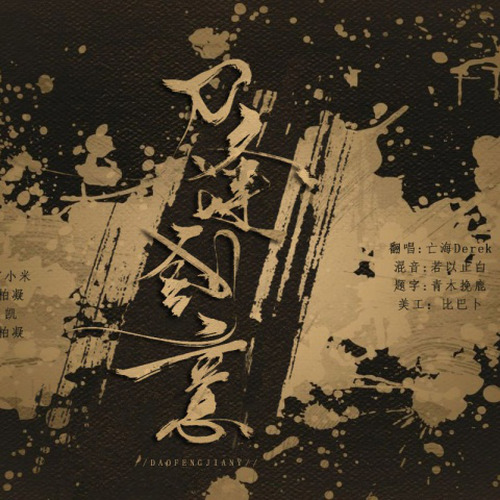 刀锋剑意
小米
柏凝
凯
柏凝
翻唱:亡海Derek
混音:若以止白
题字:青木挽鹿
美工:比巴卜
//DAOFENGJIANY//